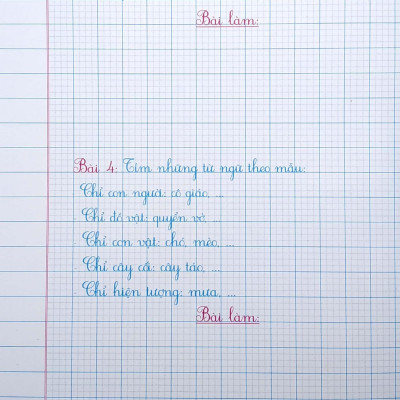 Bài làm:
Bài 4: Tìm những từ ngữ theo mẫu:
- Chỉ con người: cô giáo, ...
- Chỉ đồ vật: quyển vở, ...
- Chỉ con vật: chó, mèo, ...
- Chỉ cây cối: cây táo, ...
- Chỉ hiện tượng: mưa, ...
Bài làm: